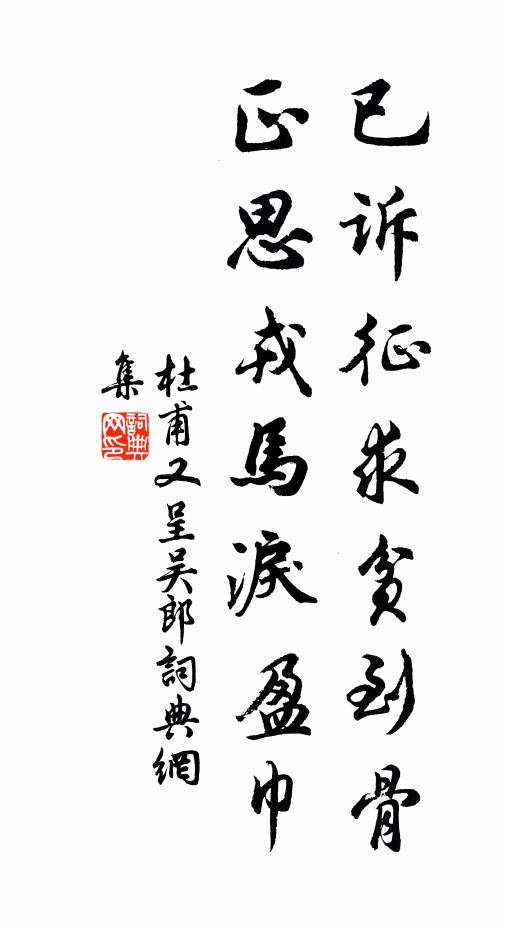 已訴征求貧到骨
正思戎馬淚盈巾
杜甫又呈吴郎詞典網
集
詞典
网印